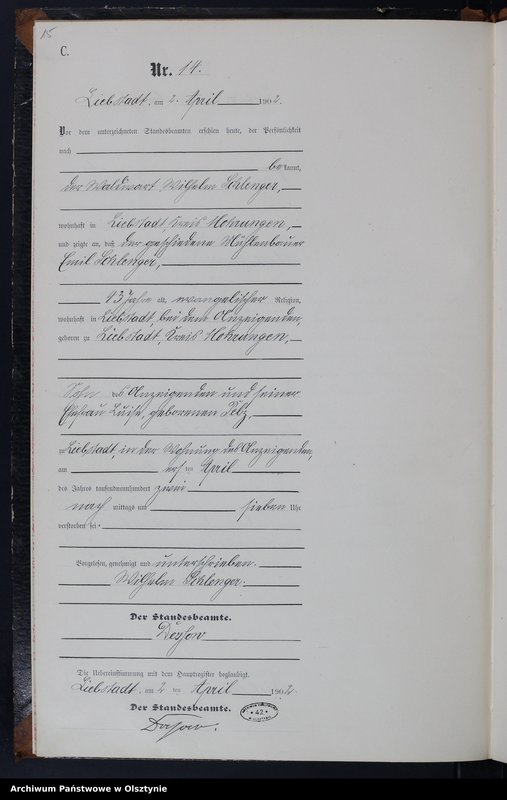 15
C.
Nr. 14.
Liebstadt, am 2. April 1902.
Vor dem unterzeichneten Standesbeamten erschien heute, der Persönlichkeit
nach
bekannt,
der Waldwart Wilhelm Schlenger,
wohnhaft in Liebstadt, Kreis Mohrungen,
und zeigte an, daß der geschiedene Mühlenbauer
Emil Schlenger,
43 Jahre alt, evangelischer Religion,
wohnhaft in Liebstadt, bei dem Anzeigenden,
geboren zu Liebstadt, Kreis Mohrungen,
Sohn des Anzeigenden und seiner
Ehefrau Luise, geborenen Pelz,
zu Liebstadt, in der Wohnung des Anzeigenden,
am ersten April
des Jahres tausendneunhundert zwei
nachmittags um sieben Uhr
verstorben sei.
Vorgelesen, genehmigt und unterschrieben.
Wilhelm Schlenger.
Der Standesbeamte.
Die Uebereinstimmung mit dem Hauptregister beglaubigt.
Liebstadt, am 2ten April 1902.
Der Standesbeamte.
42
Archiwum Państwowe w Olsztynie